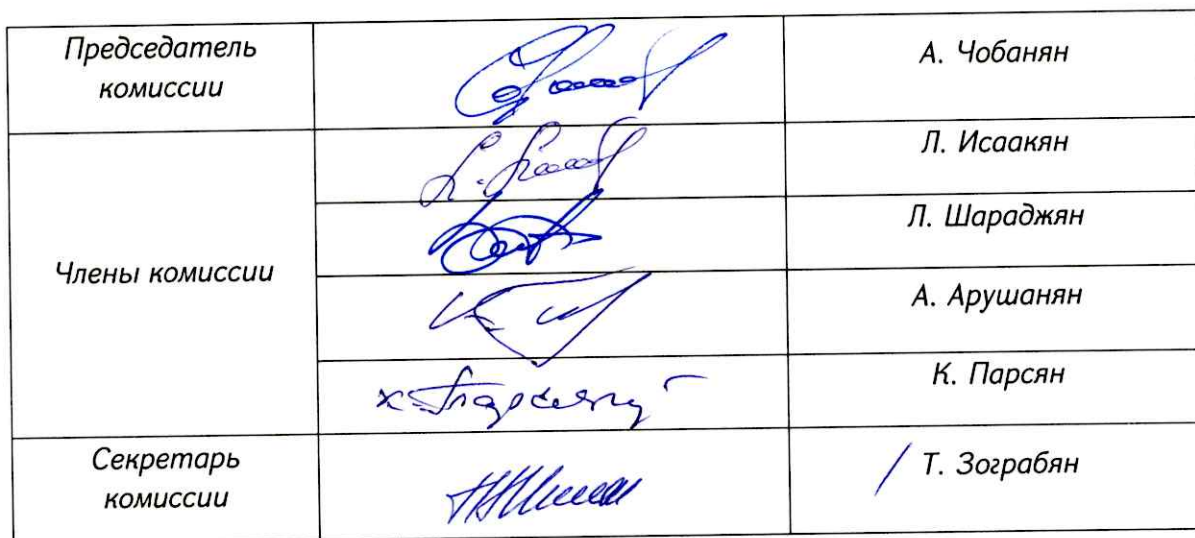 Председатель
комиссии
А. Чобанян
Члены комиссии
Л. Исаакян
Л. Шараджян
А. Арушанян
К. Парсян
Секретарь
комиссии
Т. Зограбян